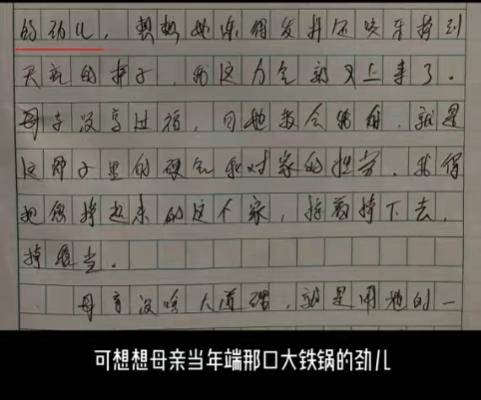 的劲儿，想想她累得发抖还咬牙撑到
天亮的样子，我这力气就又上来了。
母亲没享过福，可她教会我的，就是
这骨子里的硬气和对家的担当。我得
把她撑起来的这个家，接着撑下去，
撑稳当。
母亲没啥大道理，就是用她的一
可想想母亲当年端那口大铁锅的劲儿